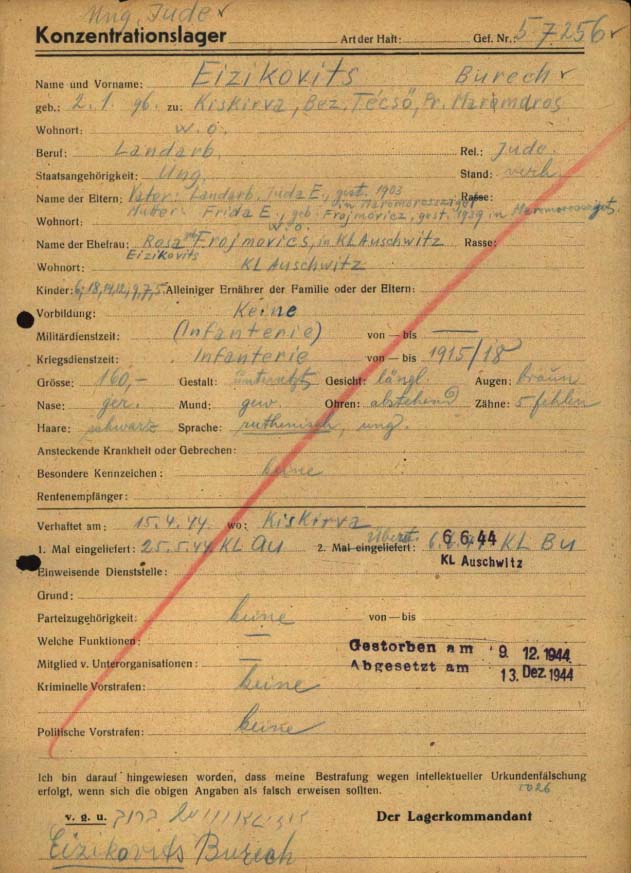 Ung. Jude
Konzentrationslager Art der Haft: Gef. Nr.: 57256
Name und Vorname: Eizikovits Burech
geb.: 2.1.96. zu: Kiskirva, Bez. Técsö, Pr. Maramdros
Wohnort: w.o.
Beruf: Landarb. Rel.: Jude.
Staatsangehörigkeit: Ung. Stand: verh.
Name der Eltern: Vater: Landarb. Juda E., gest. 1903 Rasse:
in Maromorosszíget
Wohnort: Mutter: Frida E., geb. Frojmovicz, gest. 1939 in
w.o.
Name der Ehefrau: Rosa geb. Frojmovics, in KL Auschwitz Rasse:
Eizikovits
Wohnort: KL Auschwitz
Kinder: 6, 18, 14, 12, 9, 7, 5. Alleiniger Ernährer der Familie oder der Eltern:
Vorbildung: Keine
Militärdienstzeit: (Infanterie) von — bis —
Kriegsdienstzeit: Infanterie von — bis 1915/18
Grösse: 160,- Gestalt: untersetzt Gesicht: längl. Augen: braun
Nase: ger. Mund: gew. Ohren: abstehend Zähne: 5 fehlen
Haare: schwarz Sprache: ruthenisch, ung.
Ansteckende Krankheit oder Gebrechen:
Besondere Kennzeichen: keine
Rentenempfänger:
Verhaftet am: 15.4.44 wo: Kiskirva
1. Mal eingeliefert: 25.5.44. KL Au 2. Mal eingeliefert: Überst. 6.6.44 KL Bu
6.6.44
KL Auschwitz
Einweisende Dienststelle:
Grund:
Parteizugehörigkeit: keine von — bis
Welche Funktionen: —
Gestorben am 9. 12. 1944
Mitglied v. Unterorganisationen: —
Abgesetzt am 13. Dez. 1944
Kriminelle Vorstrafen: keine
Politische Vorstrafen: keine
Ich bin darauf hingewiesen worden, dass meine Bestrafung wegen intellektueller Urkundenfälschung
erfolgt, wenn sich die obigen Angaben als falsch erweisen sollten.
1026
v. g. u. Der Lagerkommandant
Eizikovits Burech